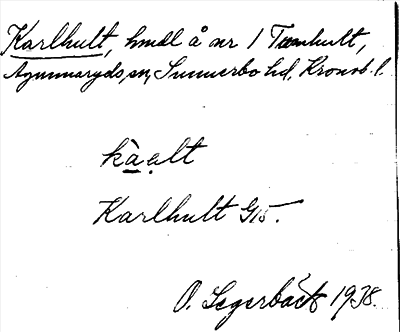 Karlhult, hmdl å nr 1 Tannhult,
Agunnaryds sn, Sunnerbo hd, Kronob. l.
kàalt
Karlhult G15.
O. Segerbäck 1938.